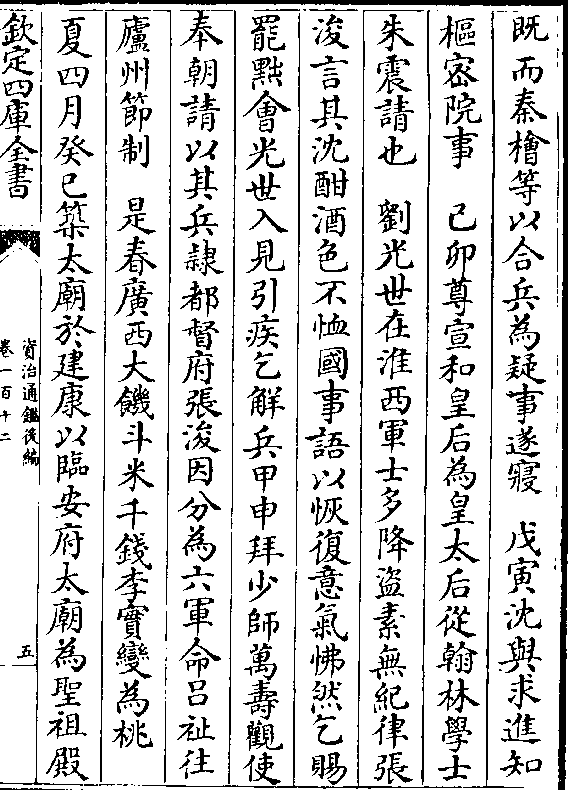 既而秦檜等以合兵為疑事遂寢　戊寅沈與求進知
樞密院事　己卯尊宣和皇后為皇太后從翰林學士
朱震請也　劉光世在淮西軍士多降盜素無紀律張
浚言其沈酣酒色不恤國事語以恢復意氣怫然乞賜
罷黜會光世入見引疾乞解兵甲申拜少師萬壽觀使
奉朝請以其兵隷都督府張浚因分為六軍命呂祉往
廬州節制　是春廣西大饑斗米千錢李實變為桃
夏四月癸巳築太廟於建康以臨安府太廟為聖祖殿
欽定四庫全書
資治通鑑後編
卷一百十二
五